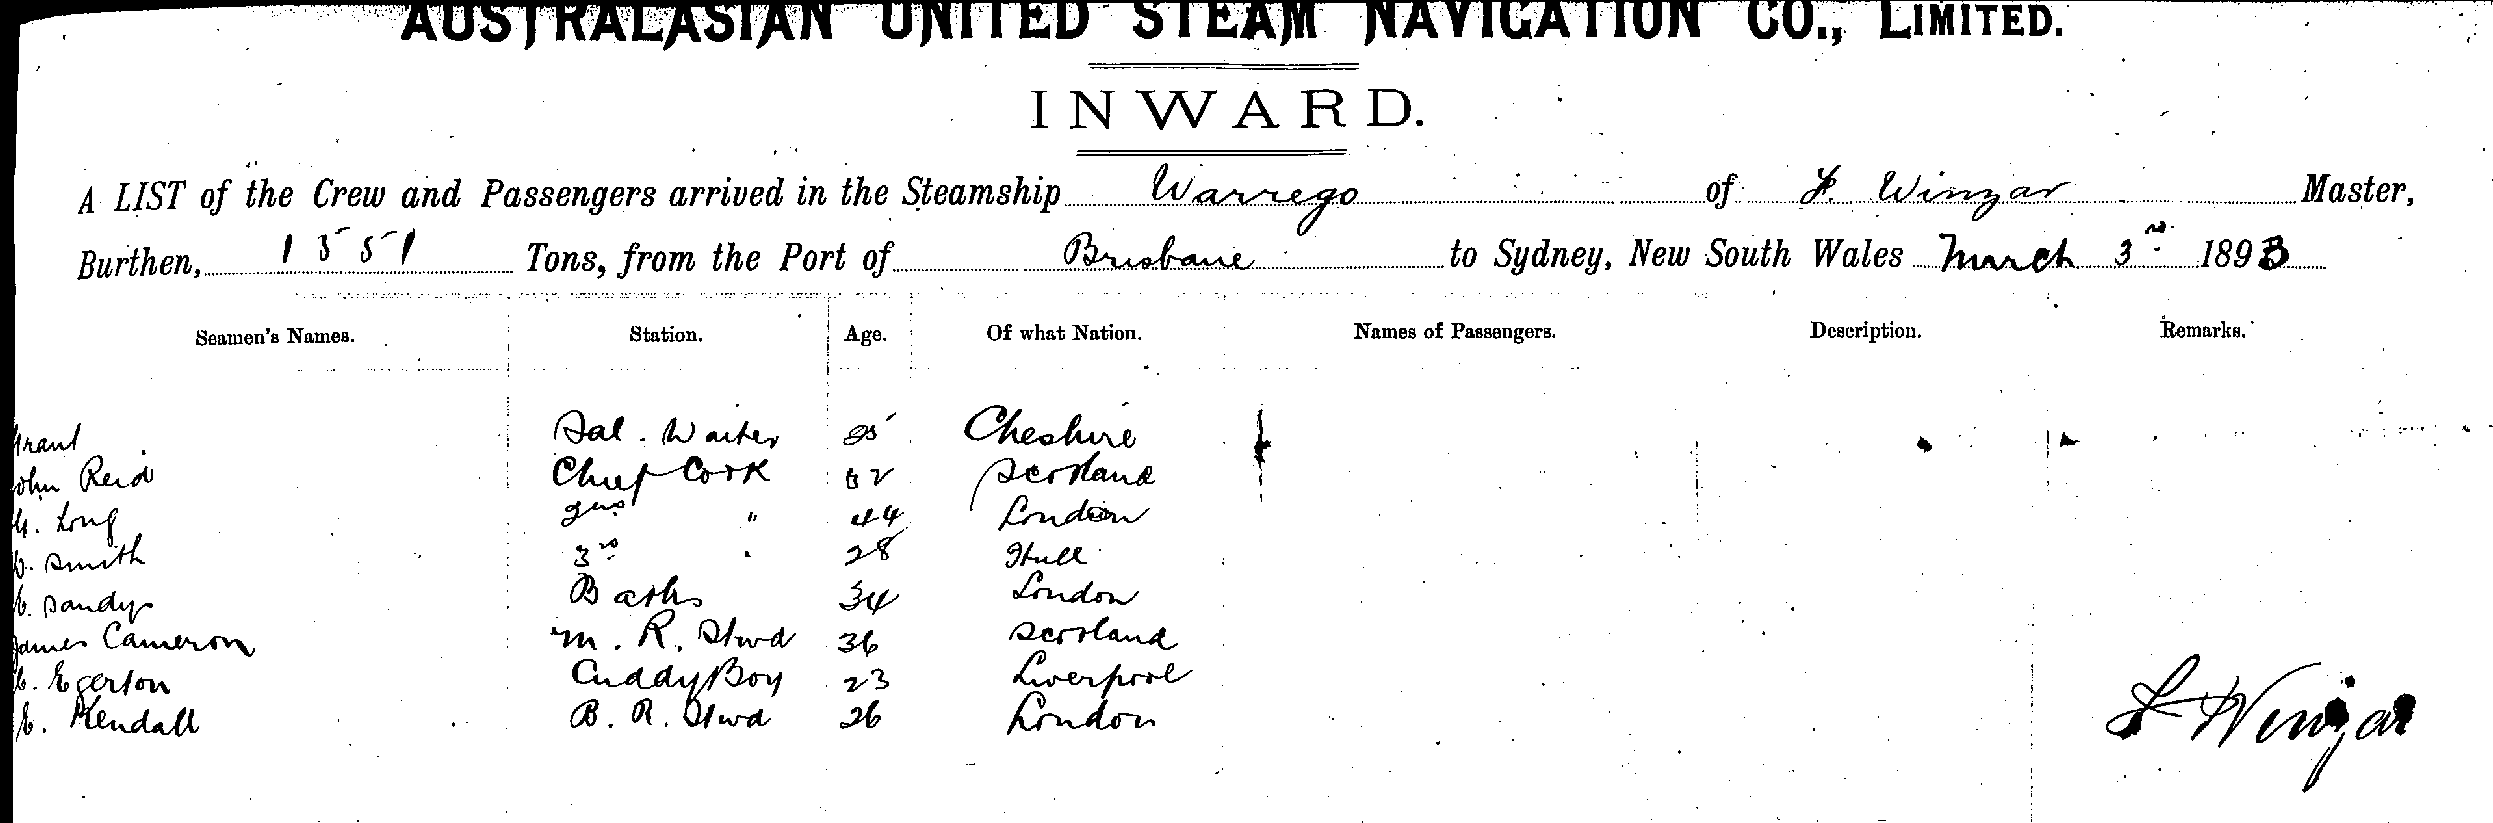 AUSTRALASIAN UNITED STEAM NAVIGATION CO., LIMITED.
INWARD.
A LIST of the Crew and Passengers arrived in the Steamship Warrego of L. Winzar Master,
Burthen, 1551 Tons, from the Port of Brisbane to Sydney, New South Wales March 3rd 1893
Seamen's Names. Station. Age. Of what Nation. Names of Passengers. Description. Remarks.
Grant Sal. Waiter 25 Cheshire
John Reid Chief Cook Scotland
Long " 44 London
Smith 3rd " 28 Hull
Sandys Baths 34 London
James Cameron M. R. Stwd 36 Scotland
Egerton Cuddy Boy 23 Liverpool
E. Kendall B. R. Stwd 26 London
L Winzar